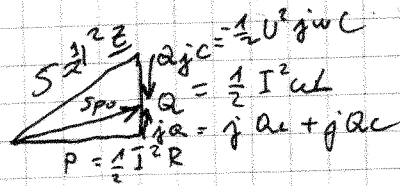 S ½ I² Z
QjC = -½ U² jωC
Spo
Q = ½ I² ωL
jQ = jQL + jQC
P = ½ I² R